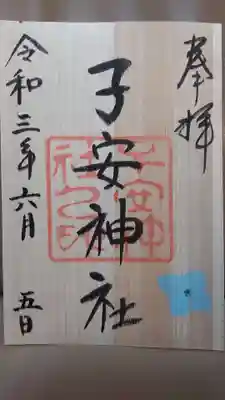 奉拝
子安神社
令和三年六月 五日